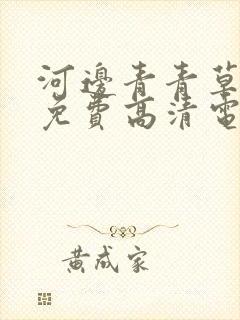 河邊青青草
免費高清電
黃成家